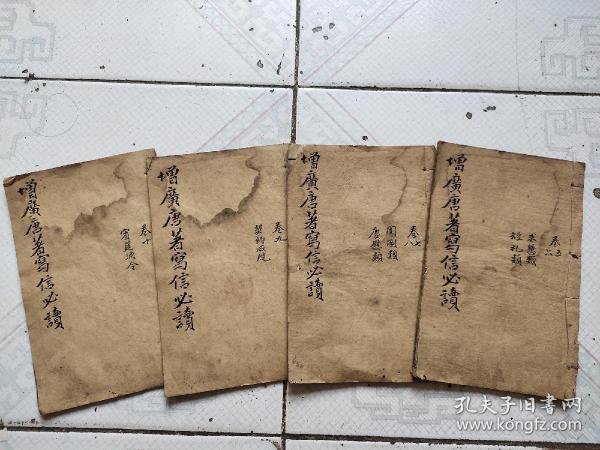 增廣唐著寫信必讀
卷十
增廣唐著寫信必讀
卷九
增廣唐著寫信必讀
卷七
八
閨閣類
慶賀類
增廣唐著寫信必讀
卷五
六
短札類
孔夫子旧书网
www.kongfz.com